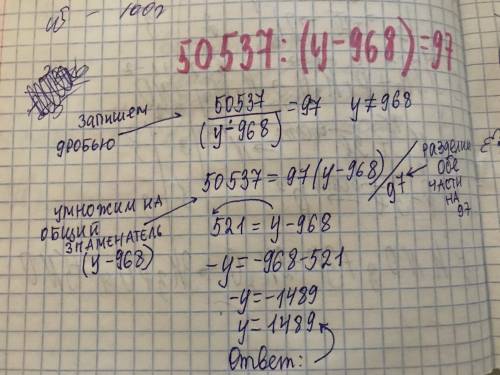 50537:(y-968)=97
запишем дробью
50537/(y-968) = 97 y≠968
50537=97(y-968) /97
разделим обе части на 97
умножим на общий знаменатель (y-968)
521 = y-968
-y=-968-521
-y=-1489
y=1489
Ответ: